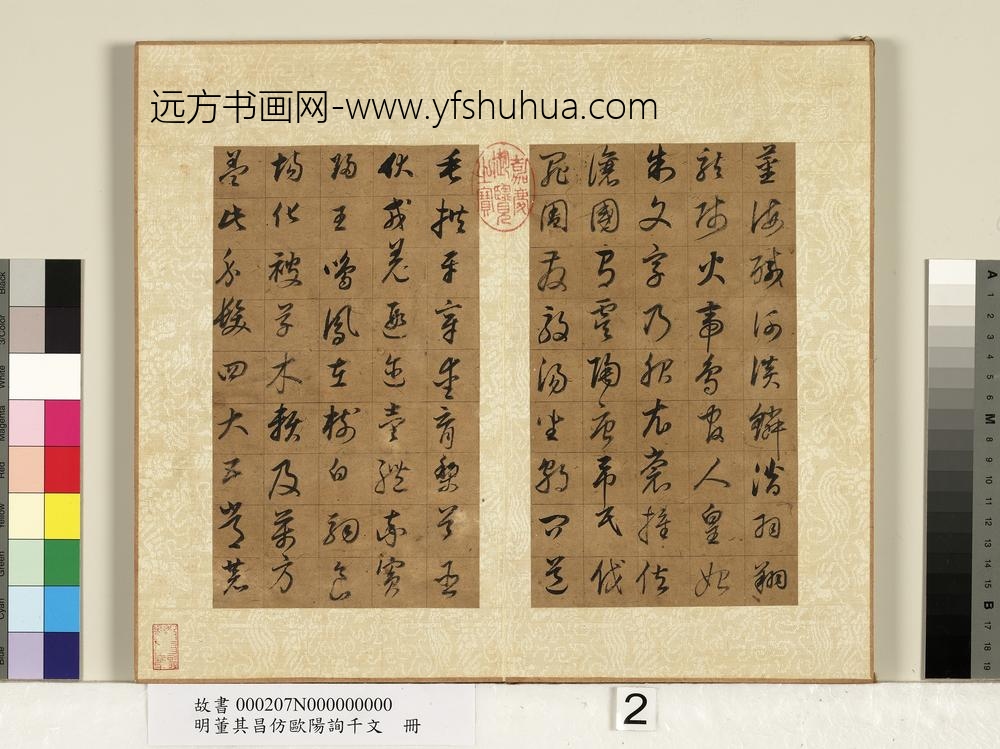 远方书画网-www.yfshuhua.com
薑海鹹河淡鱗潛羽翔
龍師火帝鳥官人皇始
制文字乃服衣裳推位
讓國有虞陶唐弔民伐
罪周發殷湯坐朝問道
嘉慶御覽之寶
垂拱平章愛育黎首臣
伏戎羌遐邇壹體率賓
歸王鳴鳳在樹白駒食
場化被草木賴及萬方
蓋此身髮四大五常恭
故書 000207N000000000
明董其昌仿歐陽詢千文 冊
2